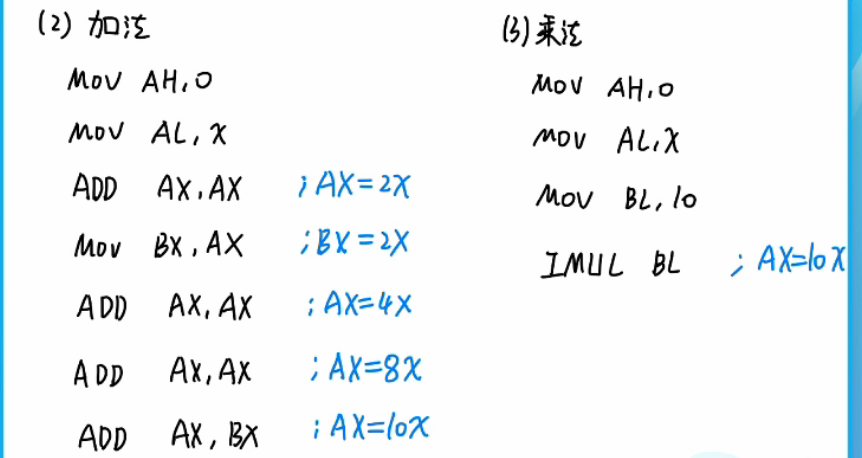 (2) 加法
MOV AH, 0
MOV AL, X
ADD AX, AX ; AX=2X
MOV BX, AX ; BX=2X
ADD AX, AX ; AX=4X
ADD AX, AX ; AX=8X
ADD AX, BX ; AX=10X
(3) 乘法
MOV AH, 0
MOV AL, X
MOV BL, 10
IMUL BL ; AX=10X